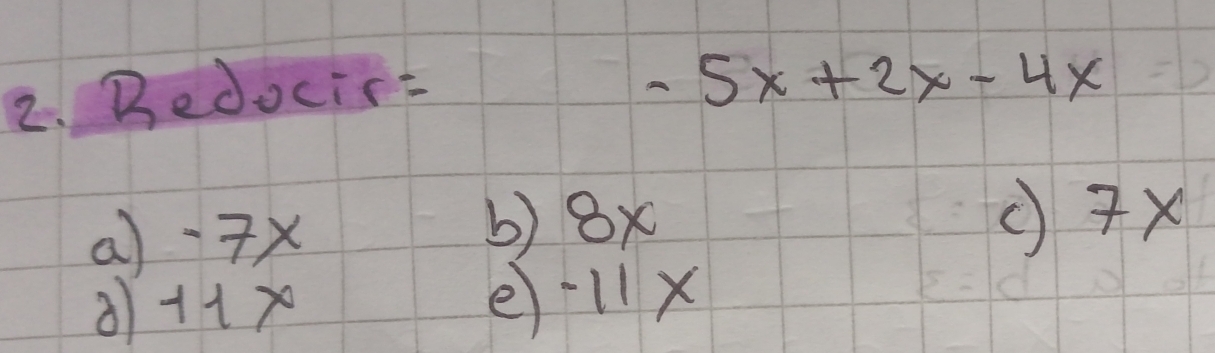 2. Redocir= - 5x + 2x - 4x
a) -7x b) 8x c) 7x
d) 11x e) -11x